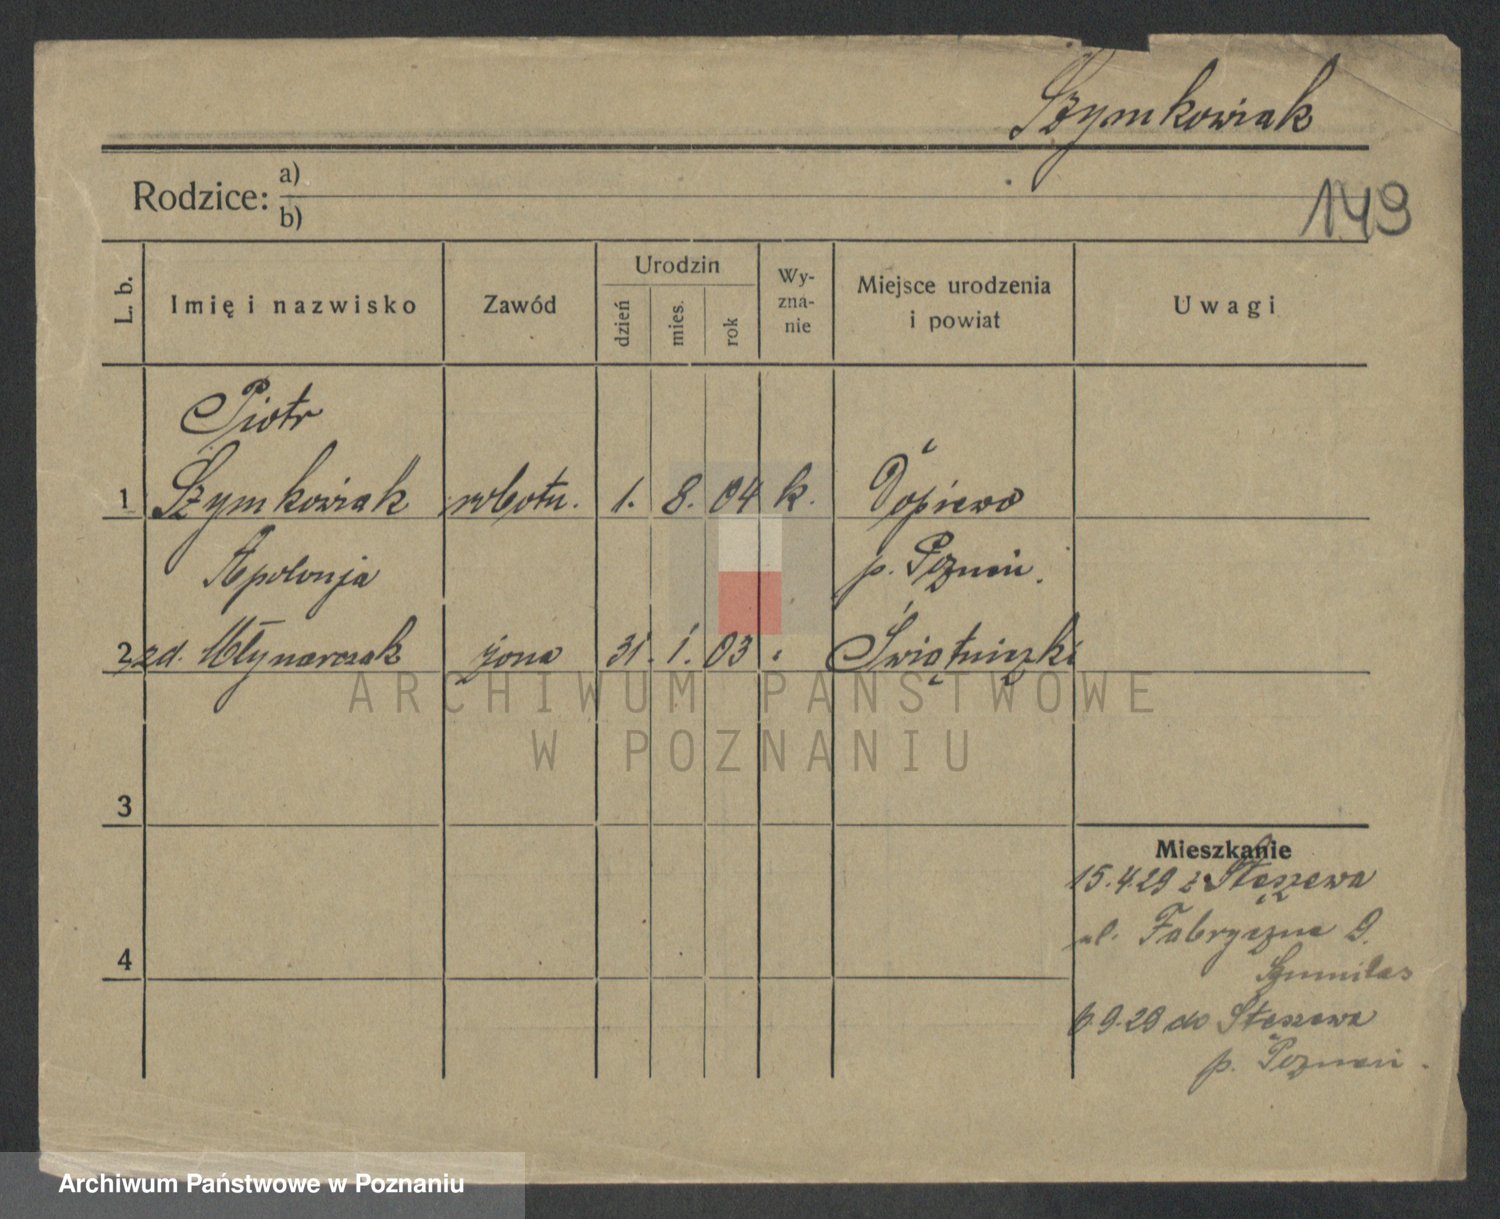 Szymkowiak
Rodzice: a)
b)
149
L. b.
Imię i nazwisko
Zawód
Urodzin
dzień
mies.
rok
Wy-
zna-
nie
Miejsce urodzenia
i powiat
Uwagi
Piotr
1 Szymkowiak robotn. 1. 8. 04 k. Dopiewo
Apolonja p. Poznań.
2 zd. Młynarczak żona 31. 1. 03 "
3
Mieszkanie
15.4.29 z Stęszewa
4 ul. Fabryczna 9.
6.9.29 do Stęszewa
p. Poznań.
ARCHIWUM PAŃSTWOWE
W POZNANIU
Archiwum Państwowe w Poznaniu